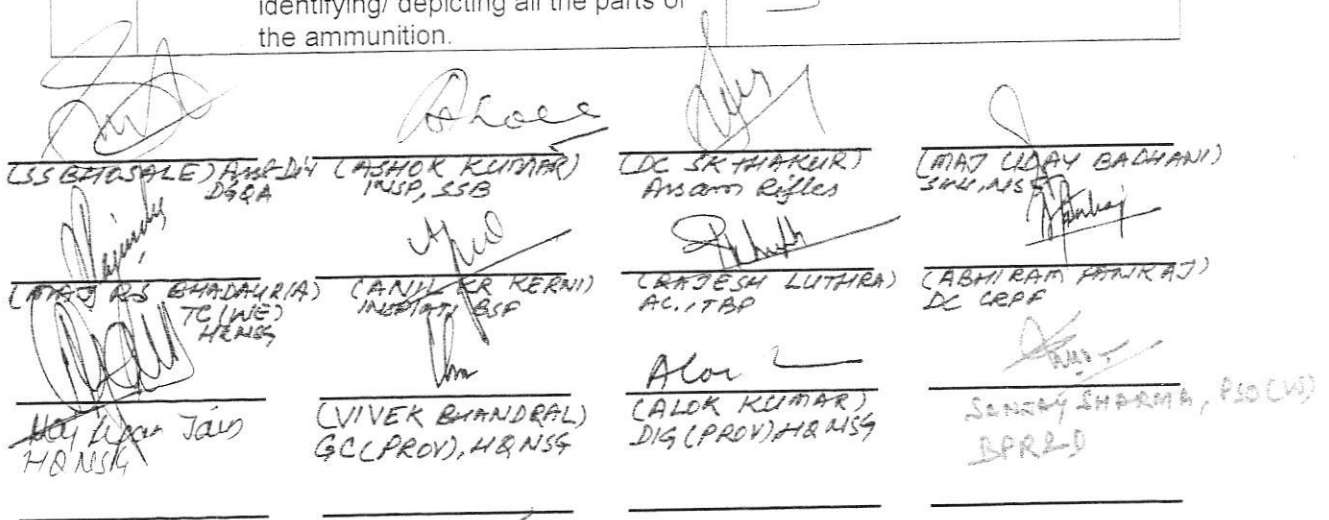 identifying/ depicting all the parts of
the ammunition.
(SS BHOSALE)
DGQA
(ASHOK KUMAR)
INSP, SSB
(DC SK THAKUR)
Assam Rifles
(MAJ UDAY BADHANI)
(MAJ RS BHADAURIA)
TC (WE)
HQ NSG
(ANIL KR KERNI)
BSF
(RAJESH LUTHRA)
AC, ITBP
(ABHIRAM PANKAJ)
DC CRPF
Jain
HQ NSG
(VIVEK BHANDRAL)
GC (PROV), HQ NSG
Alok
(ALOK KUMAR)
DIG (PROV), HQ NSG
SANJAY SHARMA, PSO (W)
BPR&D